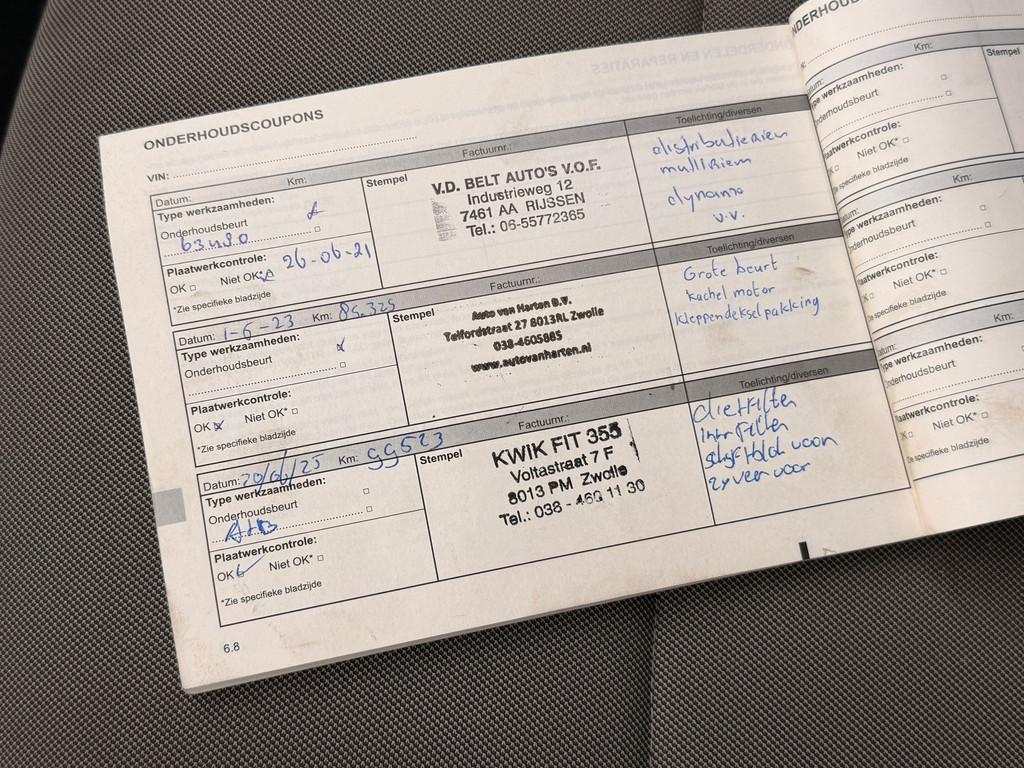 ONDERHOUDSCOUPONS
VIN:
Datum: Km: Factuurnr.: Toelichting/diversen
Type werkzaamheden:
Onderhoudsbeurt
Plaatwerkcontrole:
OK Niet OK* 26-06-21
*Zie specifieke bladzijde
Stempel
V.D. BELT AUTO'S V.O.F.
Industrieweg 12
7461 AA RIJSSEN
Tel.: 06-55772365
distributieriem
multiriem
dynamo
v.v.
Datum: 1-6-23 Km: 85.325 Factuurnr.: Toelichting/diversen
Type werkzaamheden:
Onderhoudsbeurt
Plaatwerkcontrole:
OK Niet OK*
*Zie specifieke bladzijde
Stempel
Auto van Harten B.V.
Telfordstraat 27 8013RL Zwolle
038-4605885
www.autovanharten.nl
Grote beurt
kachel motor
kleppendeksel pakking
Datum: 20/6/25 Km: 99523 Factuurnr.: Toelichting/diversen
Type werkzaamheden:
Onderhoudsbeurt
A+B
Plaatwerkcontrole:
OK Niet OK*
*Zie specifieke bladzijde
Stempel
KWIK FIT 355
Voltastraat 7 F
8013 PM Zwolle
Tel.: 038 - 460 11 30
voor
2x veer voor
6.8
Km: Stempel
Type werkzaamheden:
Onderhoudsbeurt
Plaatwerkcontrole:
Niet OK*
Km:
Type werkzaamheden:
Onderhoudsbeurt
Plaatwerkcontrole:
Niet OK*
Km:
Type werkzaamheden:
Onderhoudsbeurt
Plaatwerkcontrole:
Niet OK*